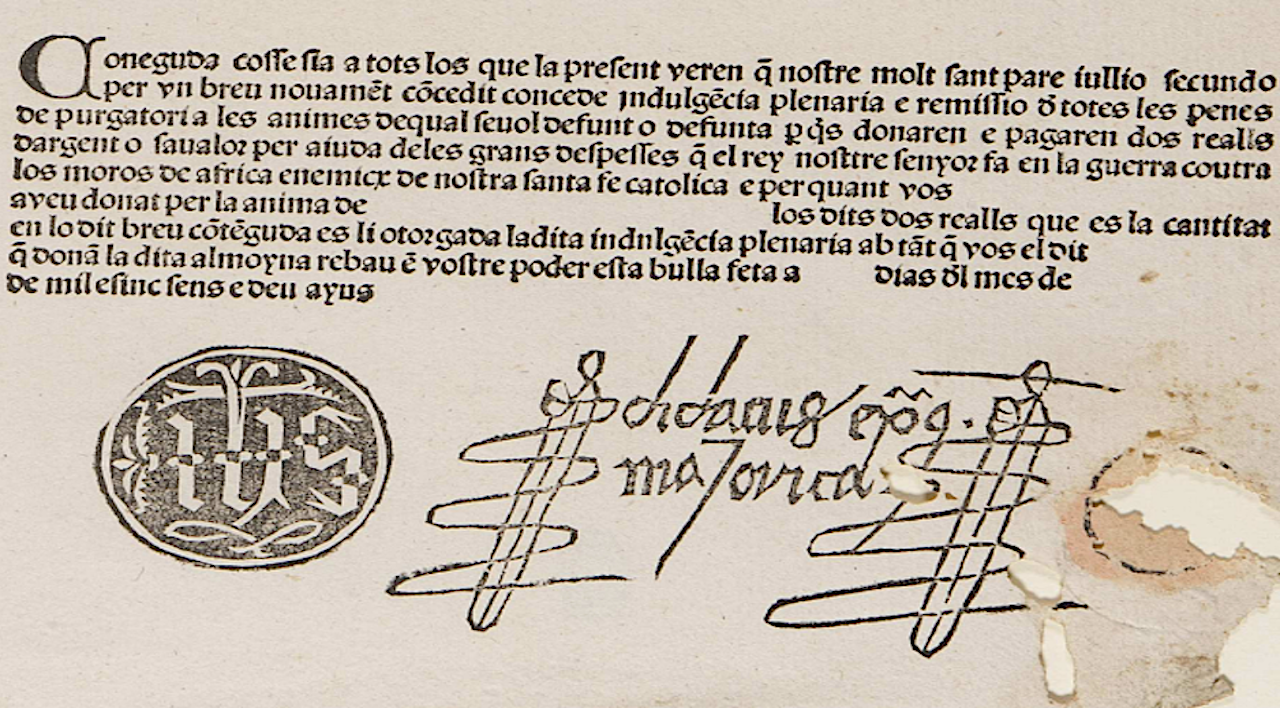 Coneguda cosse sia a tots los que la present veren q̃ nostre molt sant pare iullio secundo
per vn breu nouamẽt cõcedit concede jndulgẽcia plenaria e remissio d̃ totes les penes
de purgatoria les animes dequal seuol defunt o defunta ꝑ q̃s donaren e pagaren dos realls
dargent o saualor per aiuda deles grans despesses q̃ el rey nosttre senyor fa en la guerra coutra
los moros de africa enemicx de nostra santa fe catolica e per quant vos
aveu donat per la anima de los dits dos realls que es la cantitat
en lo dit breu cõtẽguda es li otorgada ladita indnlgẽcia plenaria ab tãt q̃ vos el dit
q̃ donã la dita almoyna rebau ẽ vostre poder esta bulla feta a dias d̃l mes de
de mil e sinc sens e deu ayus
ihs
didacus ep̃s.
majorica